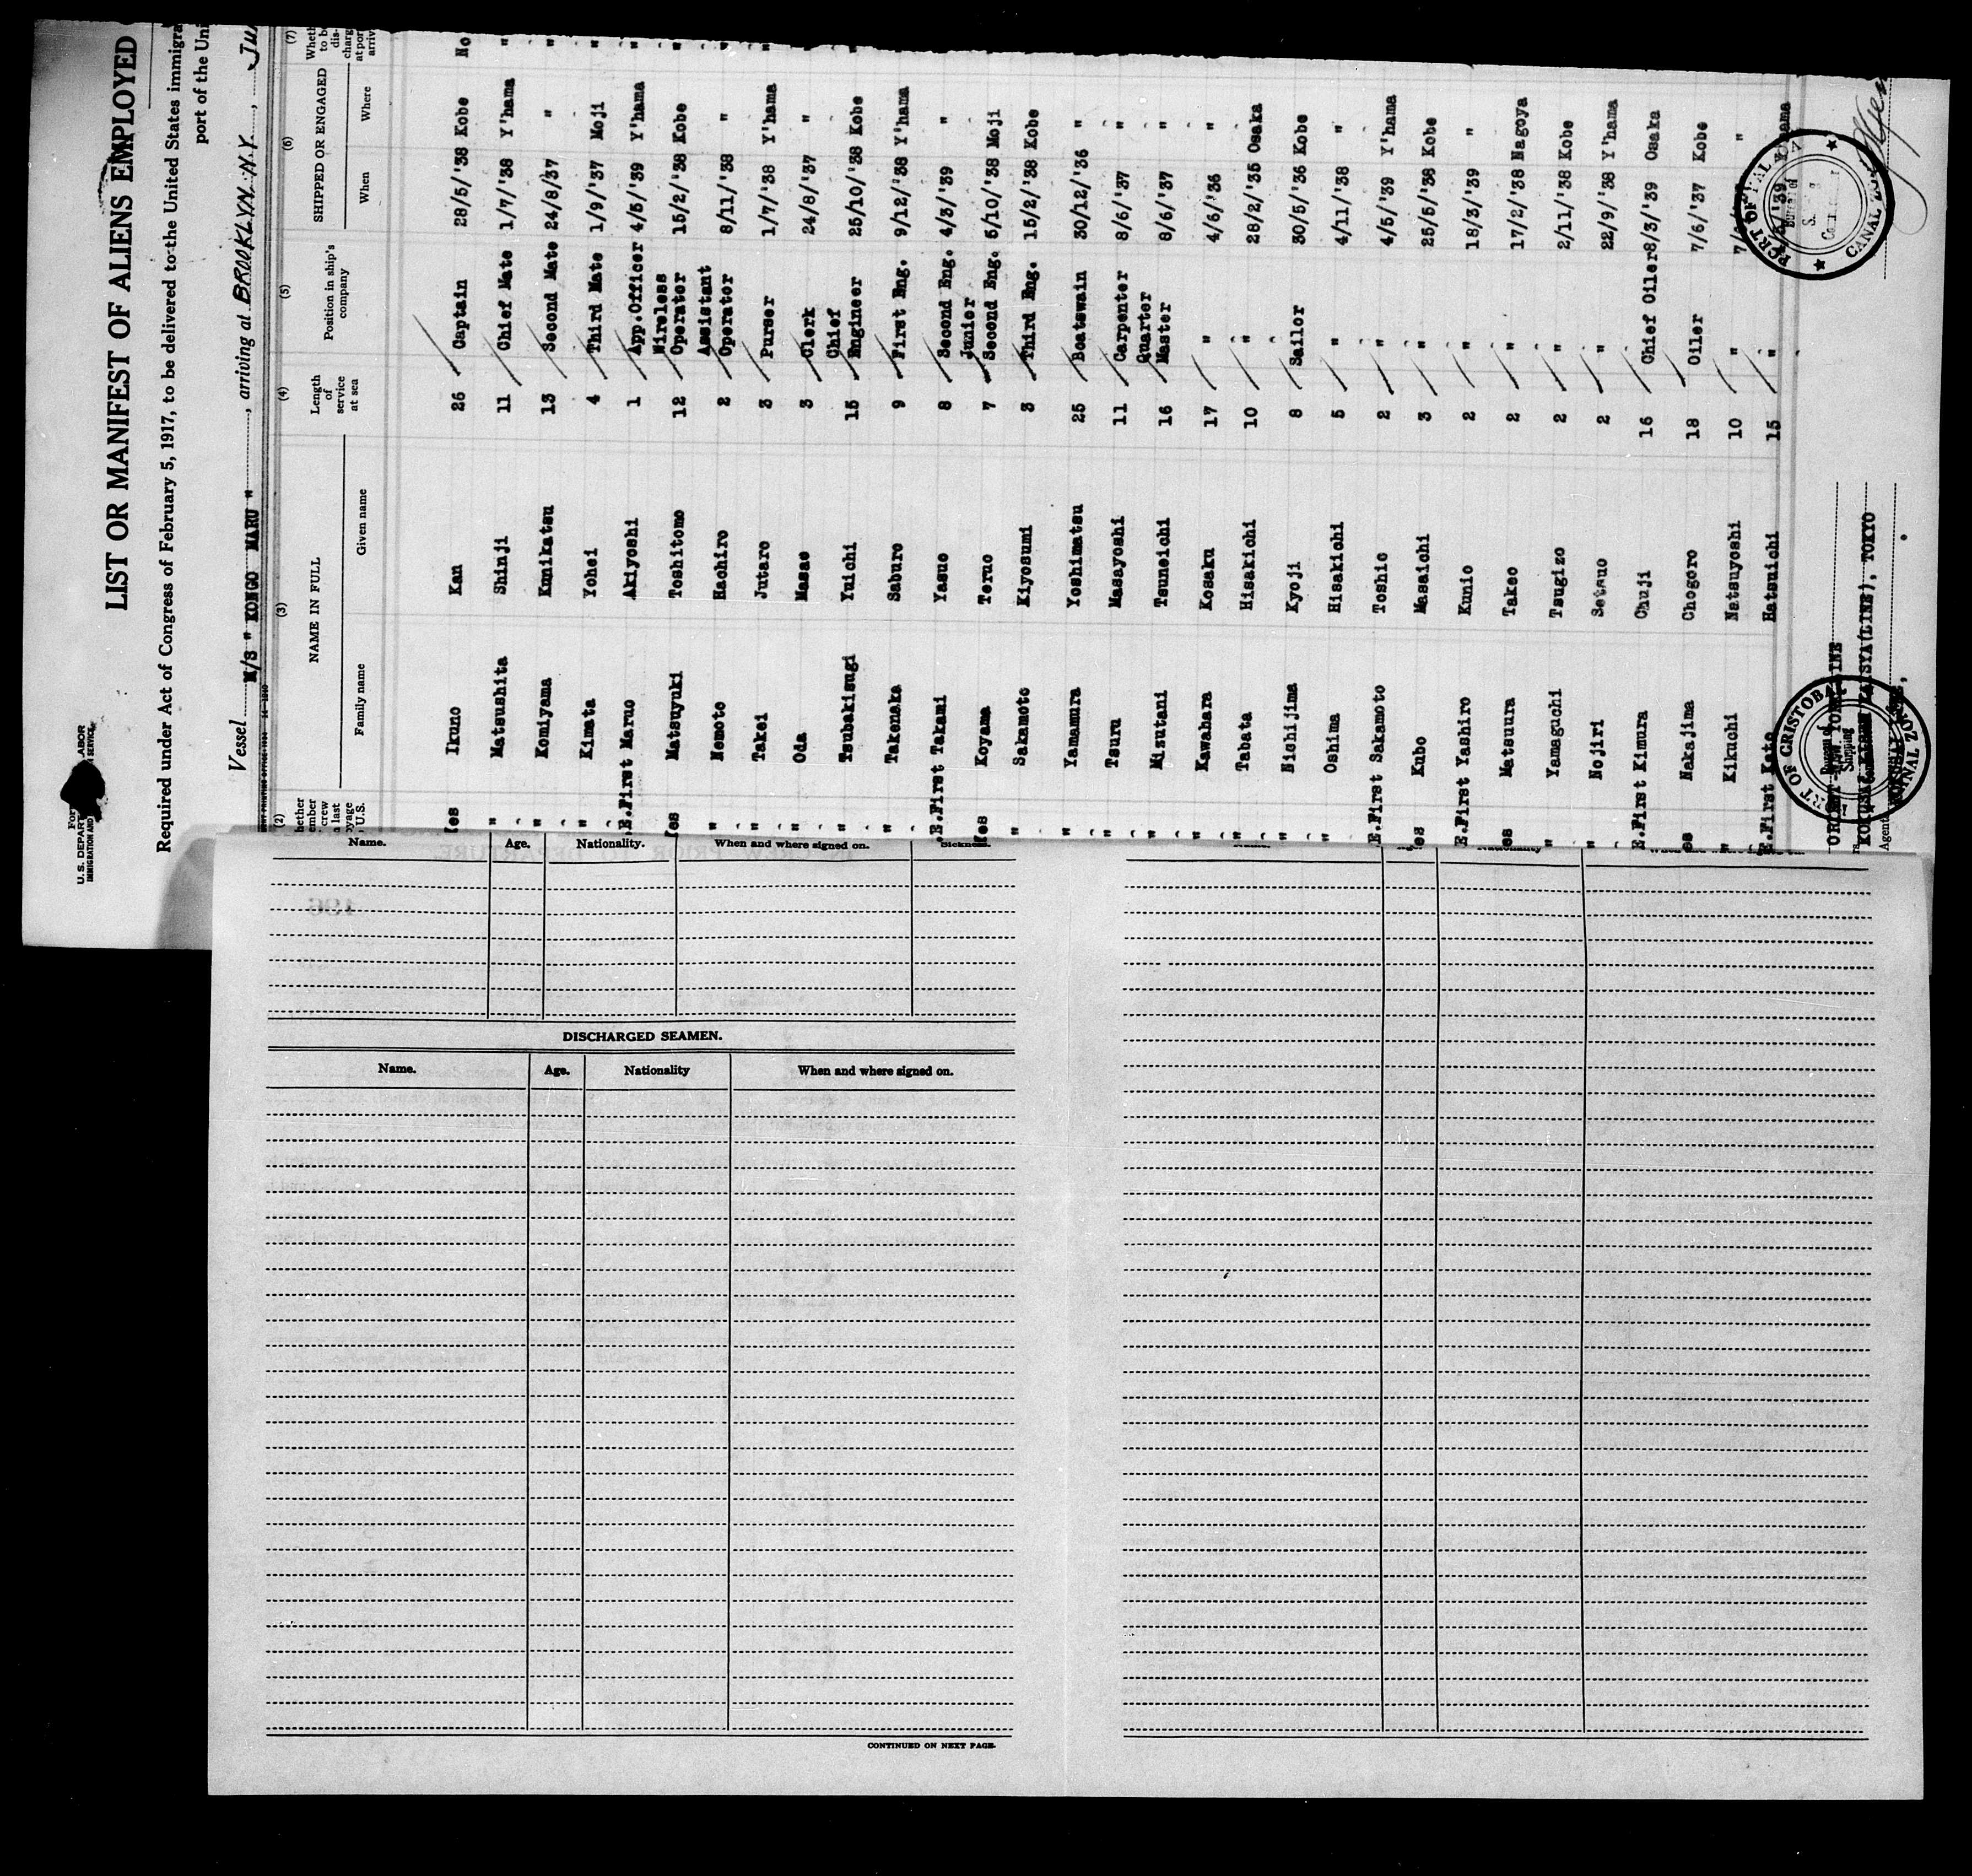 LIST OR MANIFEST OF ALIENS EMPLOYED
Required under Act of Congress of February 5, 1917, to be delivered to the United States
port of the
U.S. DEPART LABOR
IMMIGRATION AND SERVICE
Vessel M/S " KONGO MARU ", arriving at BROOKLYN. N.Y.,
(2) (3) (4) (5) (6) (7)
NAME IN FULL
Family name Given name
Length of service at sea
Position in ship's company
SHIPPED OR ENGAGED
When Where
Ikuno Kan 26 Captain 28/5/'38 Kobe No
" Matsushita Shinji 11 Chief Mate 1/7/'38 Y'hama "
" Komiyama Kunikatsu 13 Second Mate 24/8/37 " "
" Kimata Yohei 4 Third Mate 1/9/'37 Moji "
.E.First Maruo Akiyoshi 1 App.Officer 4/5/'39 Y'hama "
Matsuyuki Toshitomo 12 Wireless Operator 15/2/'38 Kobe "
" Nemoto Hachiro 2 Assistant Operator 8/11/'38 " "
" Takei Jutaro 3 Purser 1/7/'38 Y'hama "
" Oda Masao 3 Clerk 24/8/'37 " "
" Tsubakisugi Yuichi 15 Chief Engineer 25/10/'38 Kobe "
" Takenaka Saburo 9 First Eng. 9/12/'38 Y'hama "
.E.First Takami Yasuo 8 Second Eng. 4/3/'39 " "
Koyama Teruo 7 Junier Second Eng. 5/10/'38 Moji "
" Sakamoto Kiyosumi 3 Third Eng. 15/2/'38 Kobe
" Yamamura Yoshimatsu 25 Boatswain 30/12/'36 "
" Tsuru Masayoshi 11 Carpenter 8/6/'37 "
" Mizutani Tsuneichi 16 Quarter Master 8/6/'37 "
" Kawahara Kosaku 17 " 4/6/'36 "
" Tabata Hisakichi 10 " 28/2/'35 Osaka
" Nichijima Kyoji 8 Sailor 30/5/'36 Kobe
" Oshima Hisakichi 5 " 4/11/'38 "
E.First Sakamoto Toshio 2 " 4/5/'39 Y'hama
Kubo Masaichi 3 " 25/5/'38 Kobe
E.First Yashiro Kunio 2 " 18/3/'39 "
Matsuura Takeo 2 " 17/2/'38 Nagoya
" Yamaguchi Tsugizo 2 " 2/11/'38 Kobe
" Nojiri Setsuo 2 " 22/9/'38 Y'hama
E.First Kimura Chuji 16 Chief Oiler 8/3/'39 Osaka
Nakajima Chogoro 18 Oiler 7/6/'37 Kobe
" Kikuchi Natsuyoshi 10 " "
E.First Kato Hatsuichi 15 "
PORT OF CRISTOBAL
Bureau of Shipping
CANAL ZONE
CANAL ZONE
(LINE), TOKYO
Name. Age. Nationality. When and where signed on.
DISCHARGED SEAMEN.
Name. Age. Nationality When and where signed on.
CONTINUED ON NEXT PAGE.